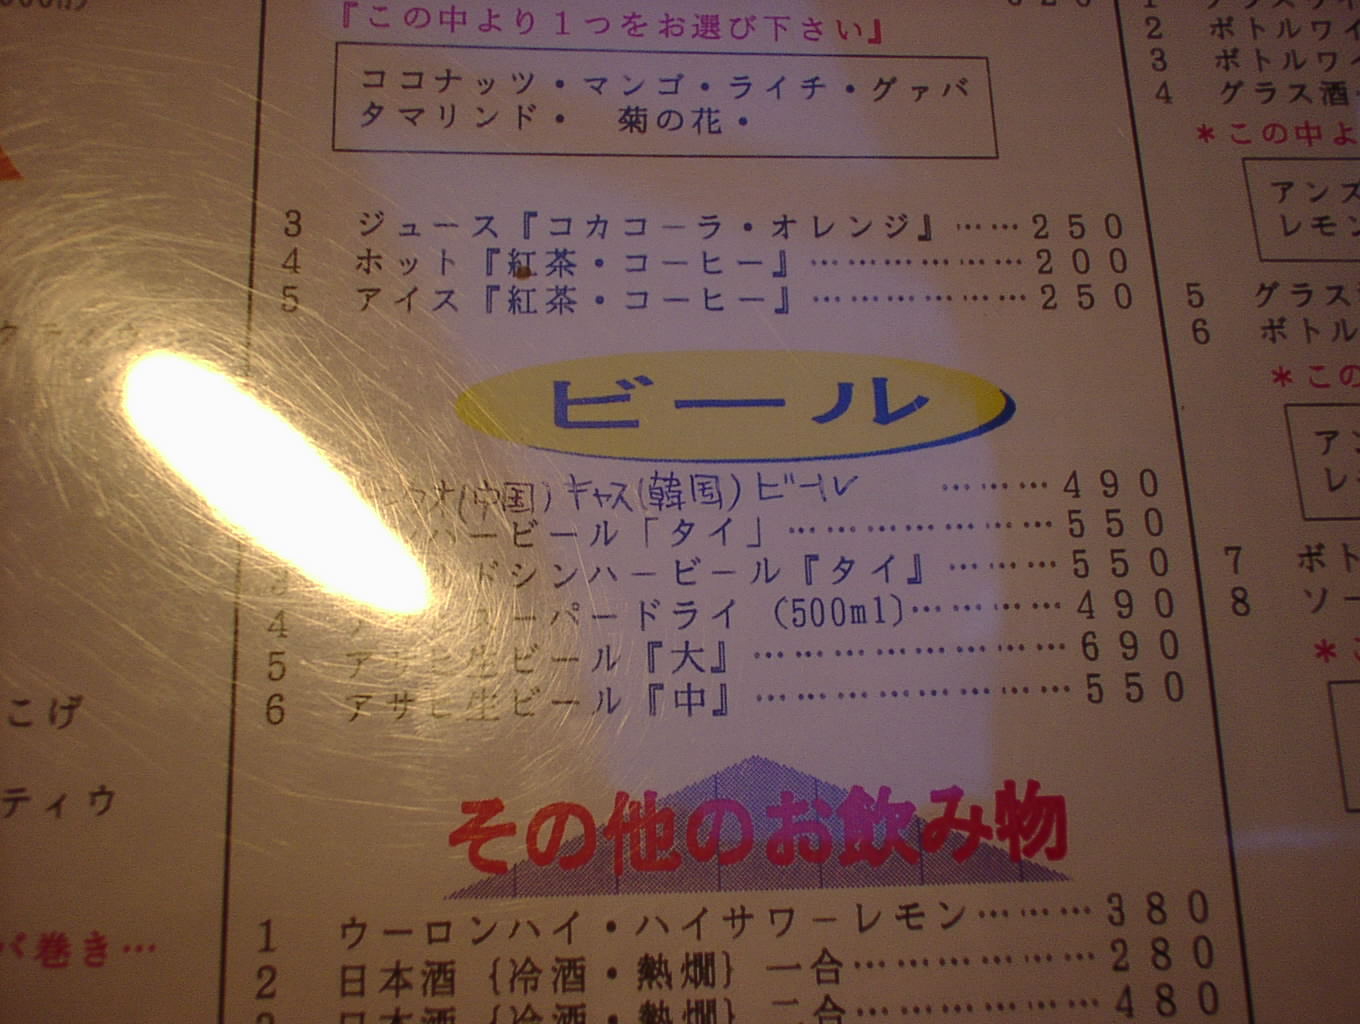 『この中より１つをお選び下さい』
ココナッツ・マンゴ・ライチ・グァバ
タマリンド・　菊の花・
3 ジュース『コカコーラ・オレンジ』……250
4 ホット『紅茶・コーヒー』………………200
5 アイス『紅茶・コーヒー』………………250
ビール
(中国) キャス(韓国) ビール ………490
ハービール「タイ」……………………550
ドシンハービール『タイ』………550
4 ーパードライ (500ml)…………490
5 アサヒ生ビール『大』………………………690
6 アサヒ生ビール『中』………………………550
その他のお飲み物
1 ウーロンハイ・ハイサワーレモン………380
2 日本酒 {冷酒・熱燗} 一合………………280
日本酒 {冷酒・熱燗} 二合………………480
こげ
ティウ
巻き…
1
2 ボトルワイ
3 ボトルワイ
4 グラス酒
＊この中よ
アンズ
レモン
5 グラス
6 ボトル
＊この
ア
レ
7 ボト
8 ソー
＊